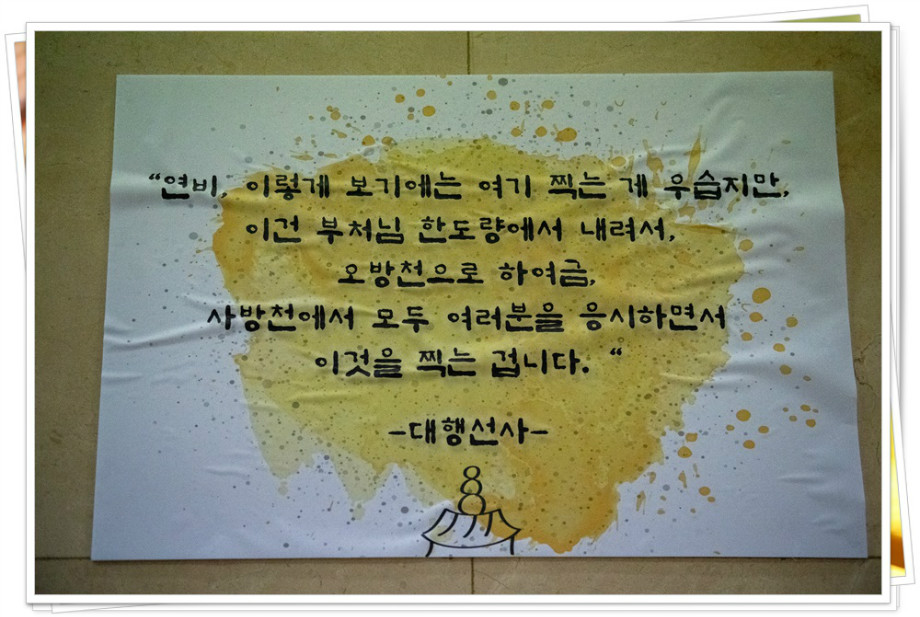 “연비, 이렇게 보기에는 여기 찍는 게 우습지만,
이건 부처님 한도량에서 내려서,
오방천으로 하여금,
사방천에서 모두 여러분을 응시하면서
이것을 찍는 겁니다. “
-대행선사-